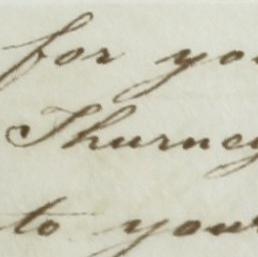 for yo
Thurney
to your